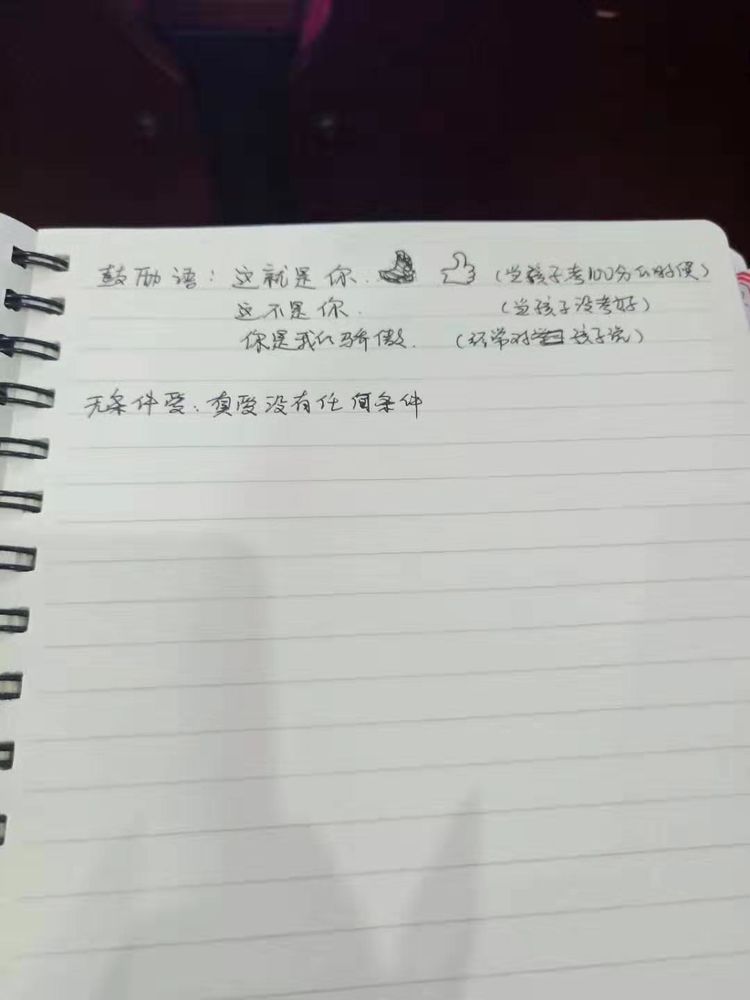 鼓励语：这就是你. (当孩子考100分的时候)
这不是你. (当孩子没考好)
你是我的骄傲. (经常对孩子说)
无条件爱：真爱没有任何条件